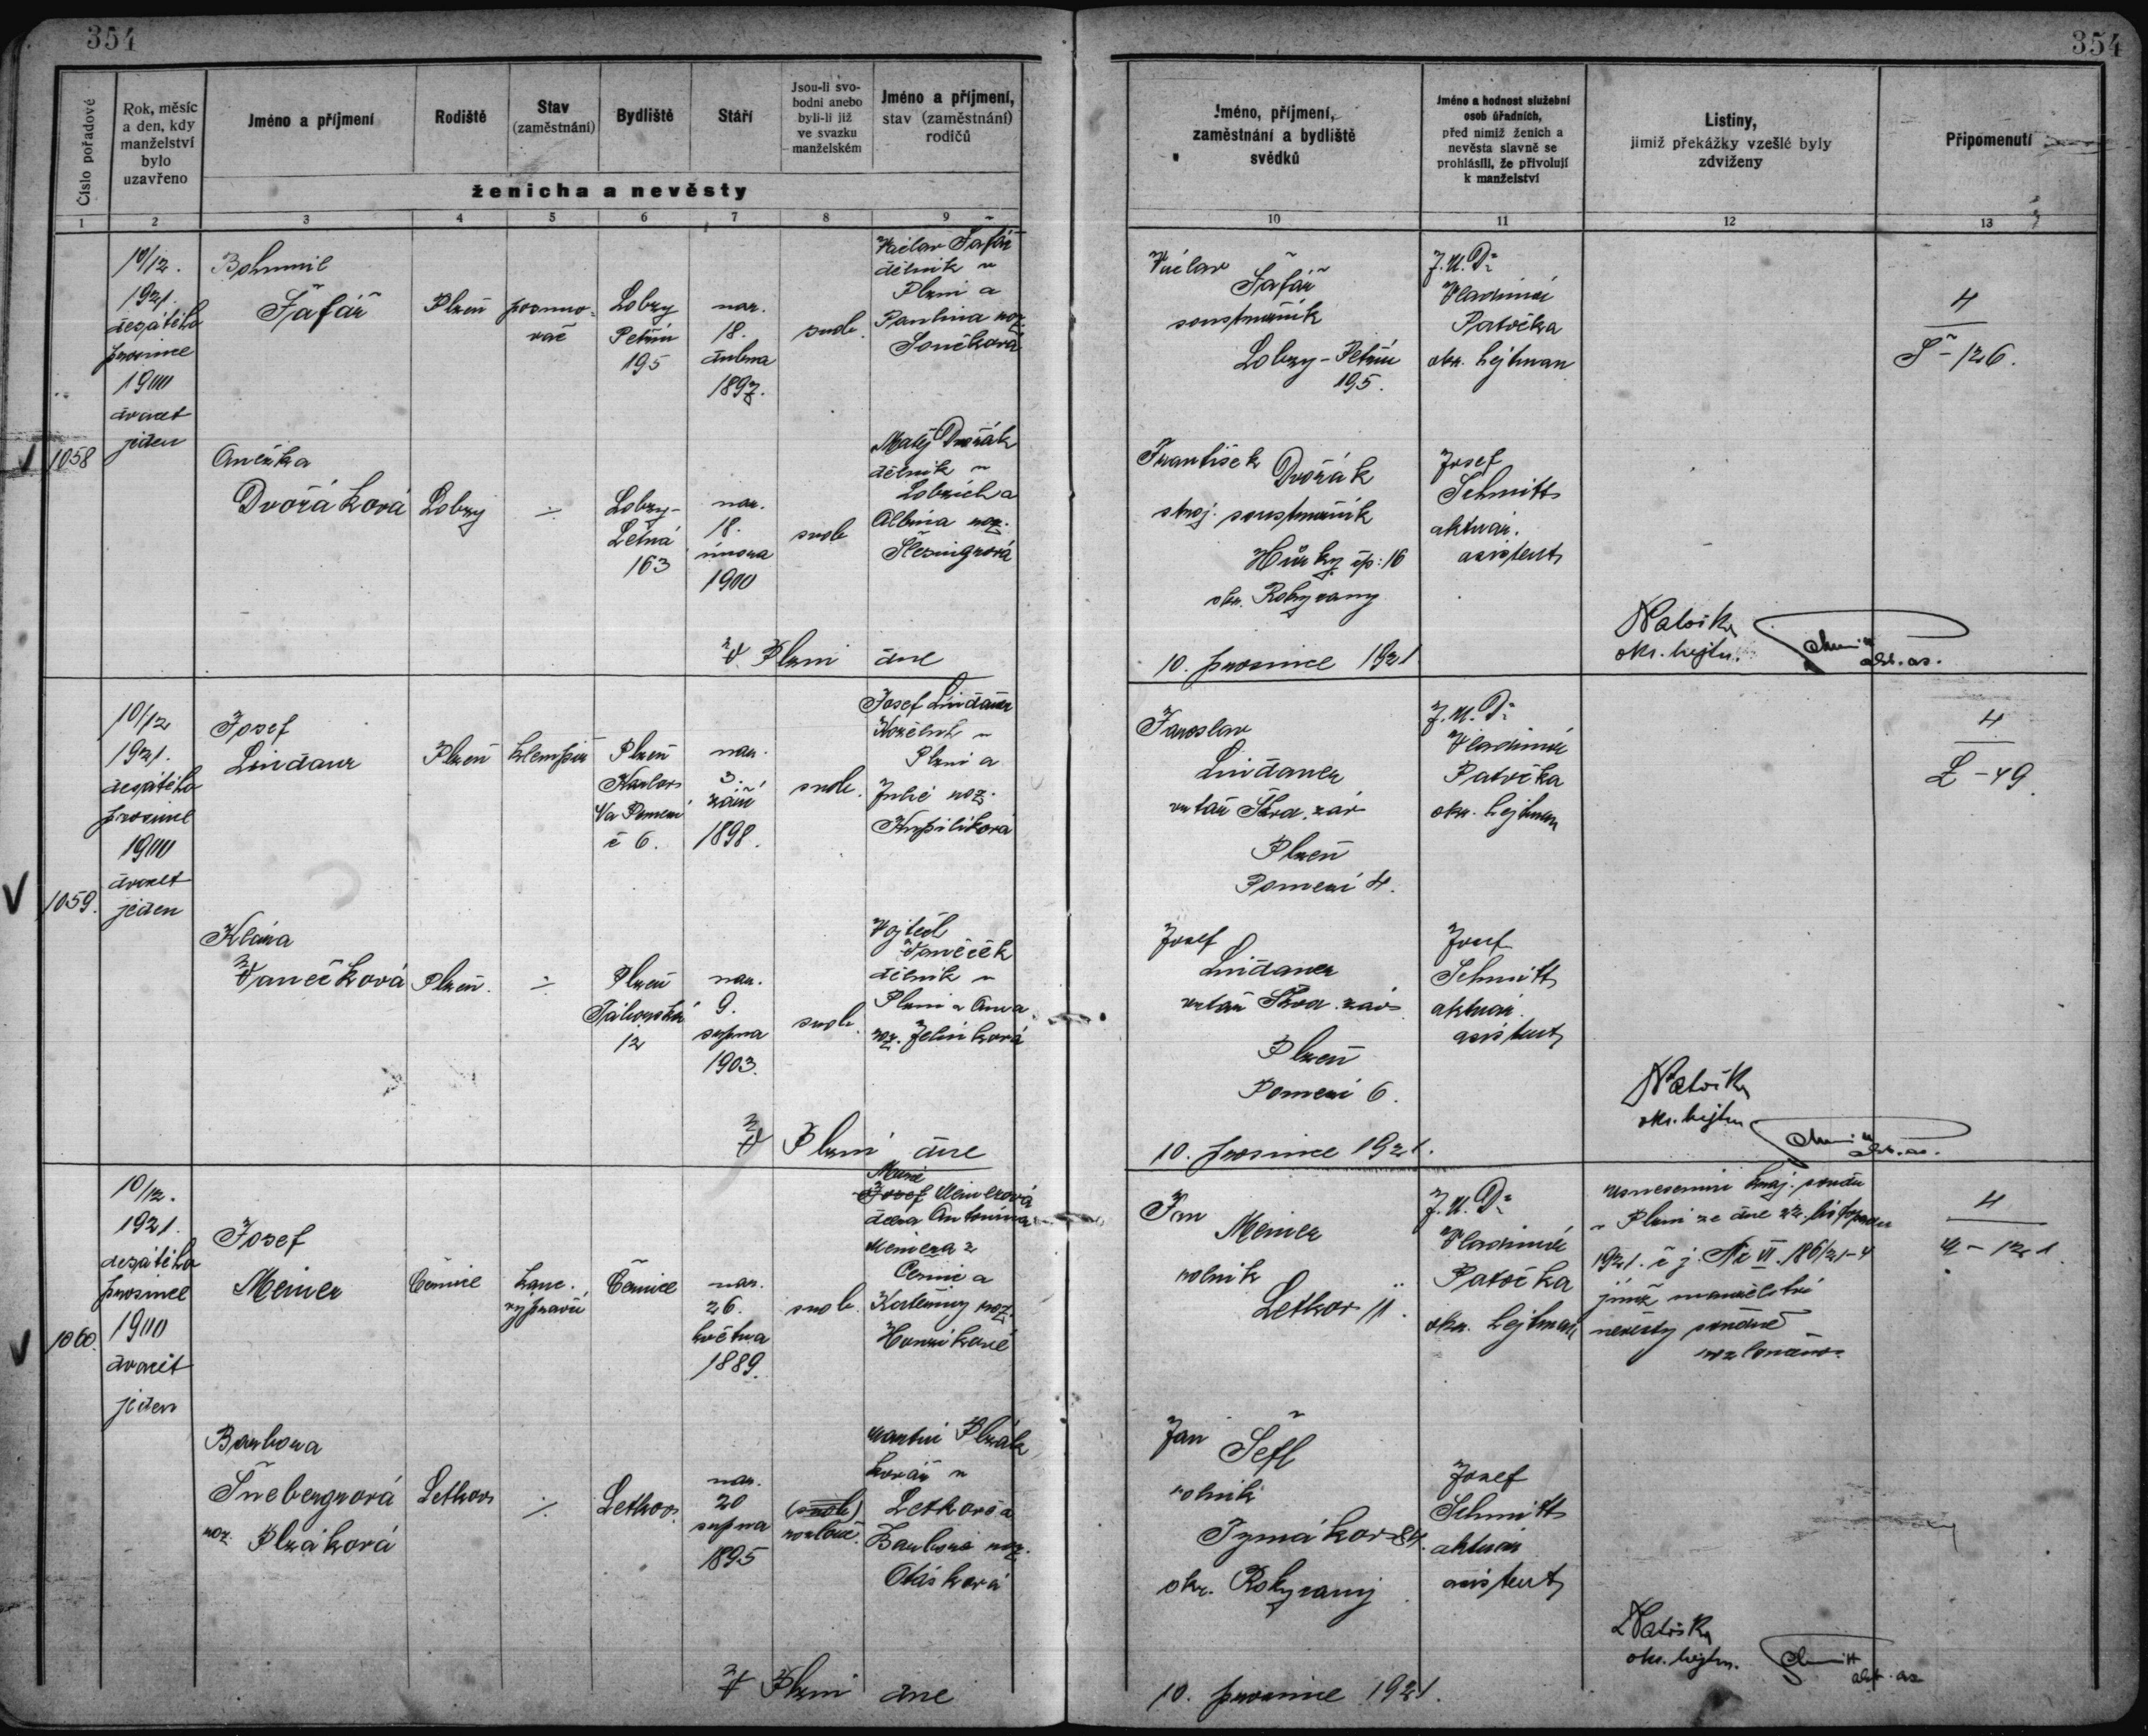 354
354
Číslo pořadové
Rok, měsíc
a den, kdy
manželství
bylo
uzavřeno
Jméno a příjmení
Rodiště
Stav
(zaměstnání)
Bydliště
Stáří
Jsou-li svo-
bodni anebo
byli-li již
ve svazku
manželském
Jméno a příjmení,
stav (zaměstnání)
rodičů
ženicha a nevěsty
Jméno, příjmení,
zaměstnání a bydliště
svědků
Jméno a hodnost služební
osob úřadních,
před nimiž ženich a
nevěsta slavně se
prohlásili, že přivolují
k manželství
Listiny,
jimiž překážky vzešlé byly
zdviženy
Připomenutí
1 2 3 4 5 6 7 8 9 10 11 12 13
1058
10/12.
1921.
desátého
prosince
1900
dvacet
jeden
Bohumil
Šafář
Plzeň
posuno-
vač
Lobzy
Petřín
195
nar.
18.
dubna
1897.
svob.
Václav Šafář
dělník v
Plzni a
Paulina roz.
Součková
Václav
Šafář
soustružník
Lobzy - Petřín
195.
J.U.Dr
Vladimír
Patočka
okr. hejtman
4
Š - 126.
Anežka
Dvořáková
Lobzy
÷
Lobzy-
Letná
163
nar.
18.
února
1900
svob
Matěj Dvořák
dělník v
Lobzích a
Albina roz.
František
Dvořák
stroj. soustružník
Hůrky čp: 16
okr. Rokycany
Josef
Schmitt
aktuár.
asistent
V Plzni dne
10. prosince 1921
Patočka
okr. hejtm.
Schmitt
akt. as.
1059.
10/12
1921.
desátého
prosince
1900
dvacet
jeden
Josef
Lindaur
Plzeň
klempíř
Plzeň
Karlov
Na Pomezí
č 6.
nar.
3.
září
1898.
svob.
Josef Lindaur
v
Plzni a
Julie roz.
Kupilíková
Jaroslav
Lindauer
vrtař Škod. záv
Plzeň
Pomezí 4.
J.U.Dr
Vladimír
Patočka
okr. hejtman
4
L - 49.
Klára
Vanečková
Plzeň.
÷
Plzeň
Táborská
12
nar.
9.
srpna
1903.
svob.
Vojtěch
Vaněček
dělník v
Plzni a Anna
roz. Jelínková
Josef
Lindauer
vrtař Škod. záv
Plzeň
Pomezí 6.
Josef
Schmitt
aktuár.
asistent
V Plzni dne
10. prosince 1921.
Patočka
okr. hejtm
Schmitt
akt. as.
1060.
10/12.
1921.
desátého
prosince
1900
dvacet
jeden
Josef
Meiner
Černice
kanc.
Černice
nar.
26.
května
1889.
svob.
Marie
Josef Meinerová
dcera Antonína
Meinera z
Černic a
Kateřiny roz.
Honzíkové
Jan
Meiner
rolník
Letkov 11.
J.U.Dr
Vladimír
Patočka
okr. hejtman
usnesením kraj. soudu
v Plzni ze dne 22. listopadu
1921. č j. Nc VI. 186/21-4
jímž manželství
nevěsty soudně
rozloučeno.
4
Barbora
Šnebergrová
roz. Plzáková
Letkov
÷
Letkov.
nar.
20
srpna
1895
(svob)
rozlouč.
Martin Plzák
kovář v
Letkově a
Barbora roz.
Otásková
Jan
Šefl
rolník
Tymákov 84.
okr. Rokycany
Josef
Schmitt
aktuár
asistent
V Plzni dne
10. prosince 1921.
Patočka
okr. hejtm.
Schmitt
akt. as